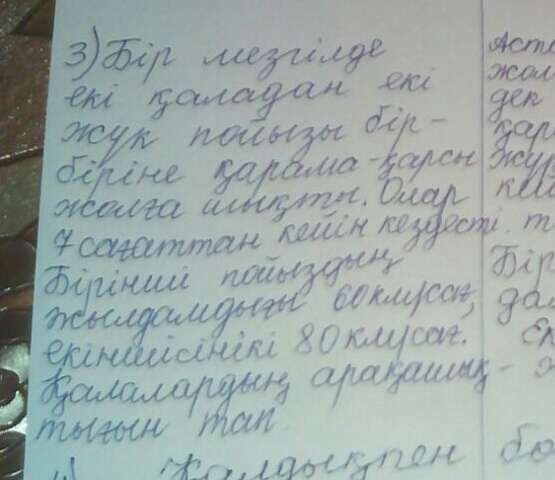 3) Бір мезгілде
екі қаладан екі
жүк пойызы бір-
біріне қарама-қарсы
жолға шықты. Олар
7 сағаттан кейін кездесті.
Бірінші пойыздың
жылдамдығы 60км/сағ,
екіншісінікі 80км/сағ.
Қалалардың арақашық-
тығын тап.
Қалдықпен бо
Аст
жол
дек
қар
жүр
Бір